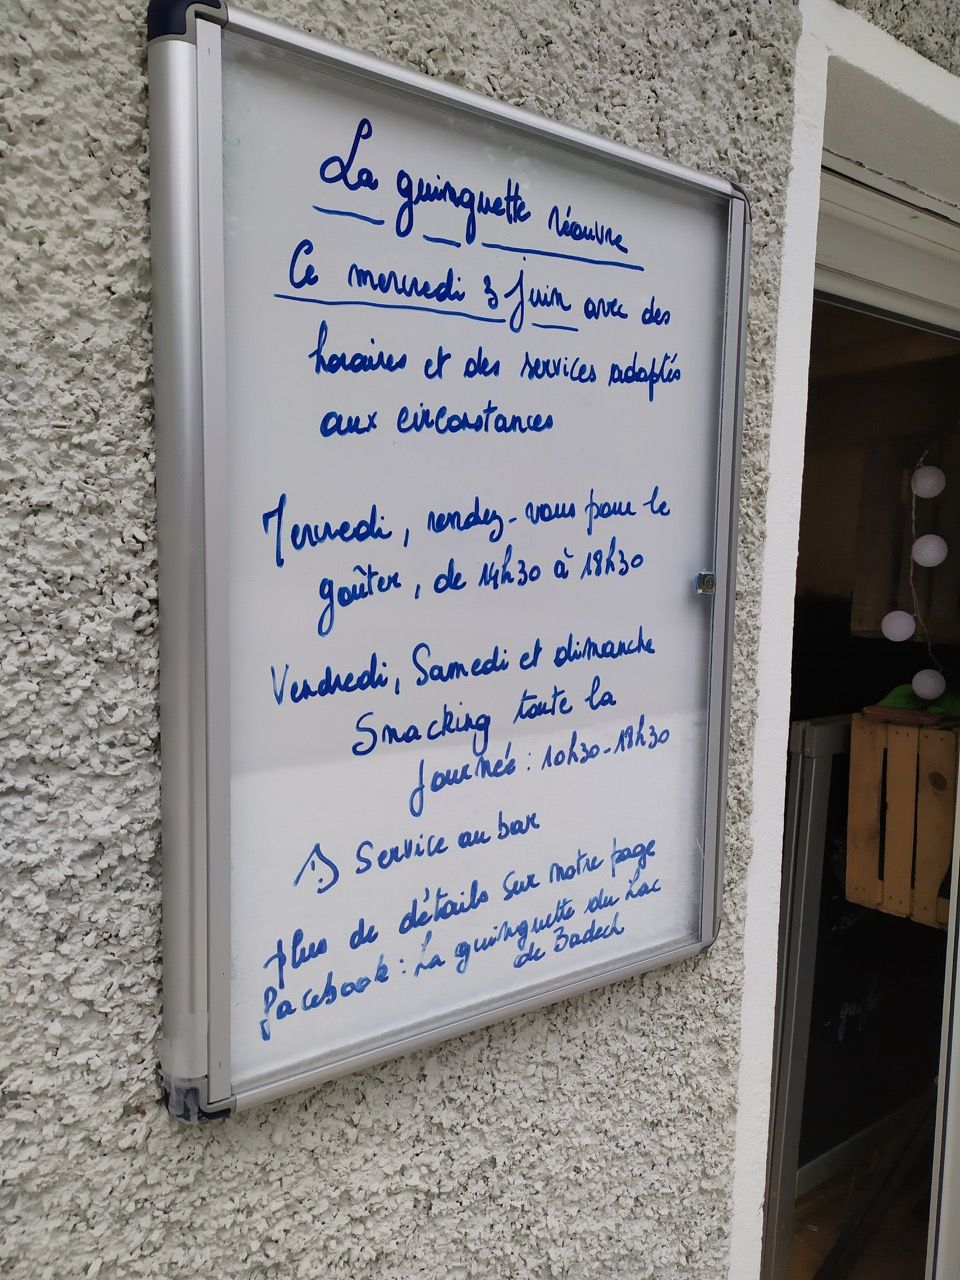 La guinguette réouvre
Ce mercredi 3 juin avec des
horaires et des services adaptés
aux circonstances
Mercredi, rendez-vous pour le
goûter, de 14h30 à 18h30
Vendredi, Samedi et dimanche
Snacking toute la
journée : 10h30-18h30
⚠ Service au bar
plus de détails sur notre page
facebook : La guinguette du Lac
de Badech